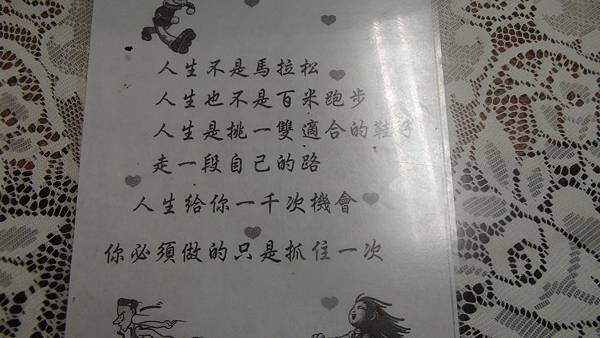 人生不是馬拉松
人生也不是百米跑步
人生是挑一雙適合的鞋子
走一段自己的路
人生給你一千次機會
你必須做的只是抓住一次